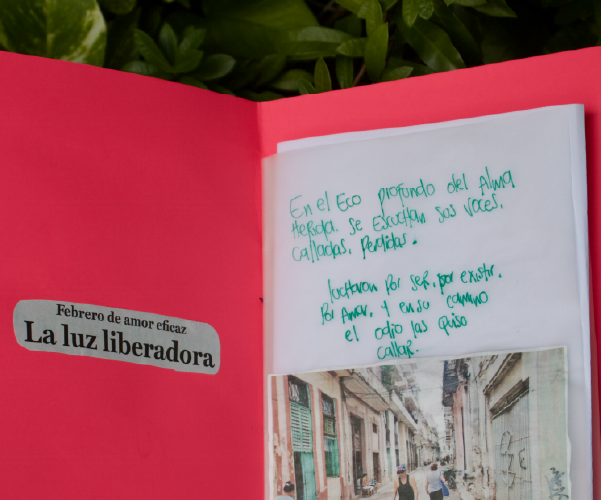 Febrero de amor eficaz
La luz liberadora
En el Eco profundo del Alma
Herida. se Escuchan sus voces.
calladas, Perdidas.
lucharon Por ser, por existir.
Por Amar, y en su camino
el odio las quiso
callar.